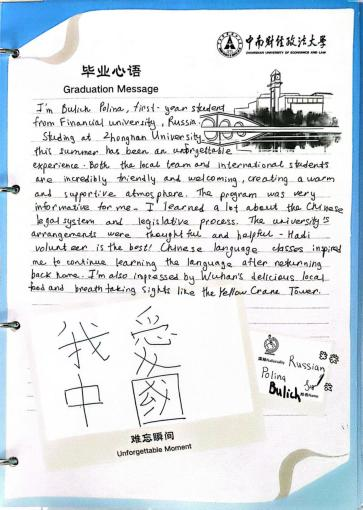 中南财经政法大学
ZHONGNAN UNIVERSITY OF ECONOMICS AND LAW
毕业心语
Graduation Message
I'm Bulich Polina, first-year student
from Financial university, Russia.
Studing at Zhongnan University
this summer has been an unforgettable
experience. Both the local team and international students
are incredibly friendly and welcoming, creating a warm
and supportive atmosphere. The program was very
informative for me. I learned a lot about the Chinese
legal system and legislative process. The university's
arrangements were thoughtful and helpful - Hadi
volunteer is the best! Chinese language classes inspired
me to continue learning the language after returning
back home. I'm also impressed by Wuhan's delicious local
food and breathtaking sights like the Yellow Crane Tower.
我愛
中國
国籍/Nationality Russian
Polina
Bulich
姓名/Name
难忘瞬间
Unforgettable Moment